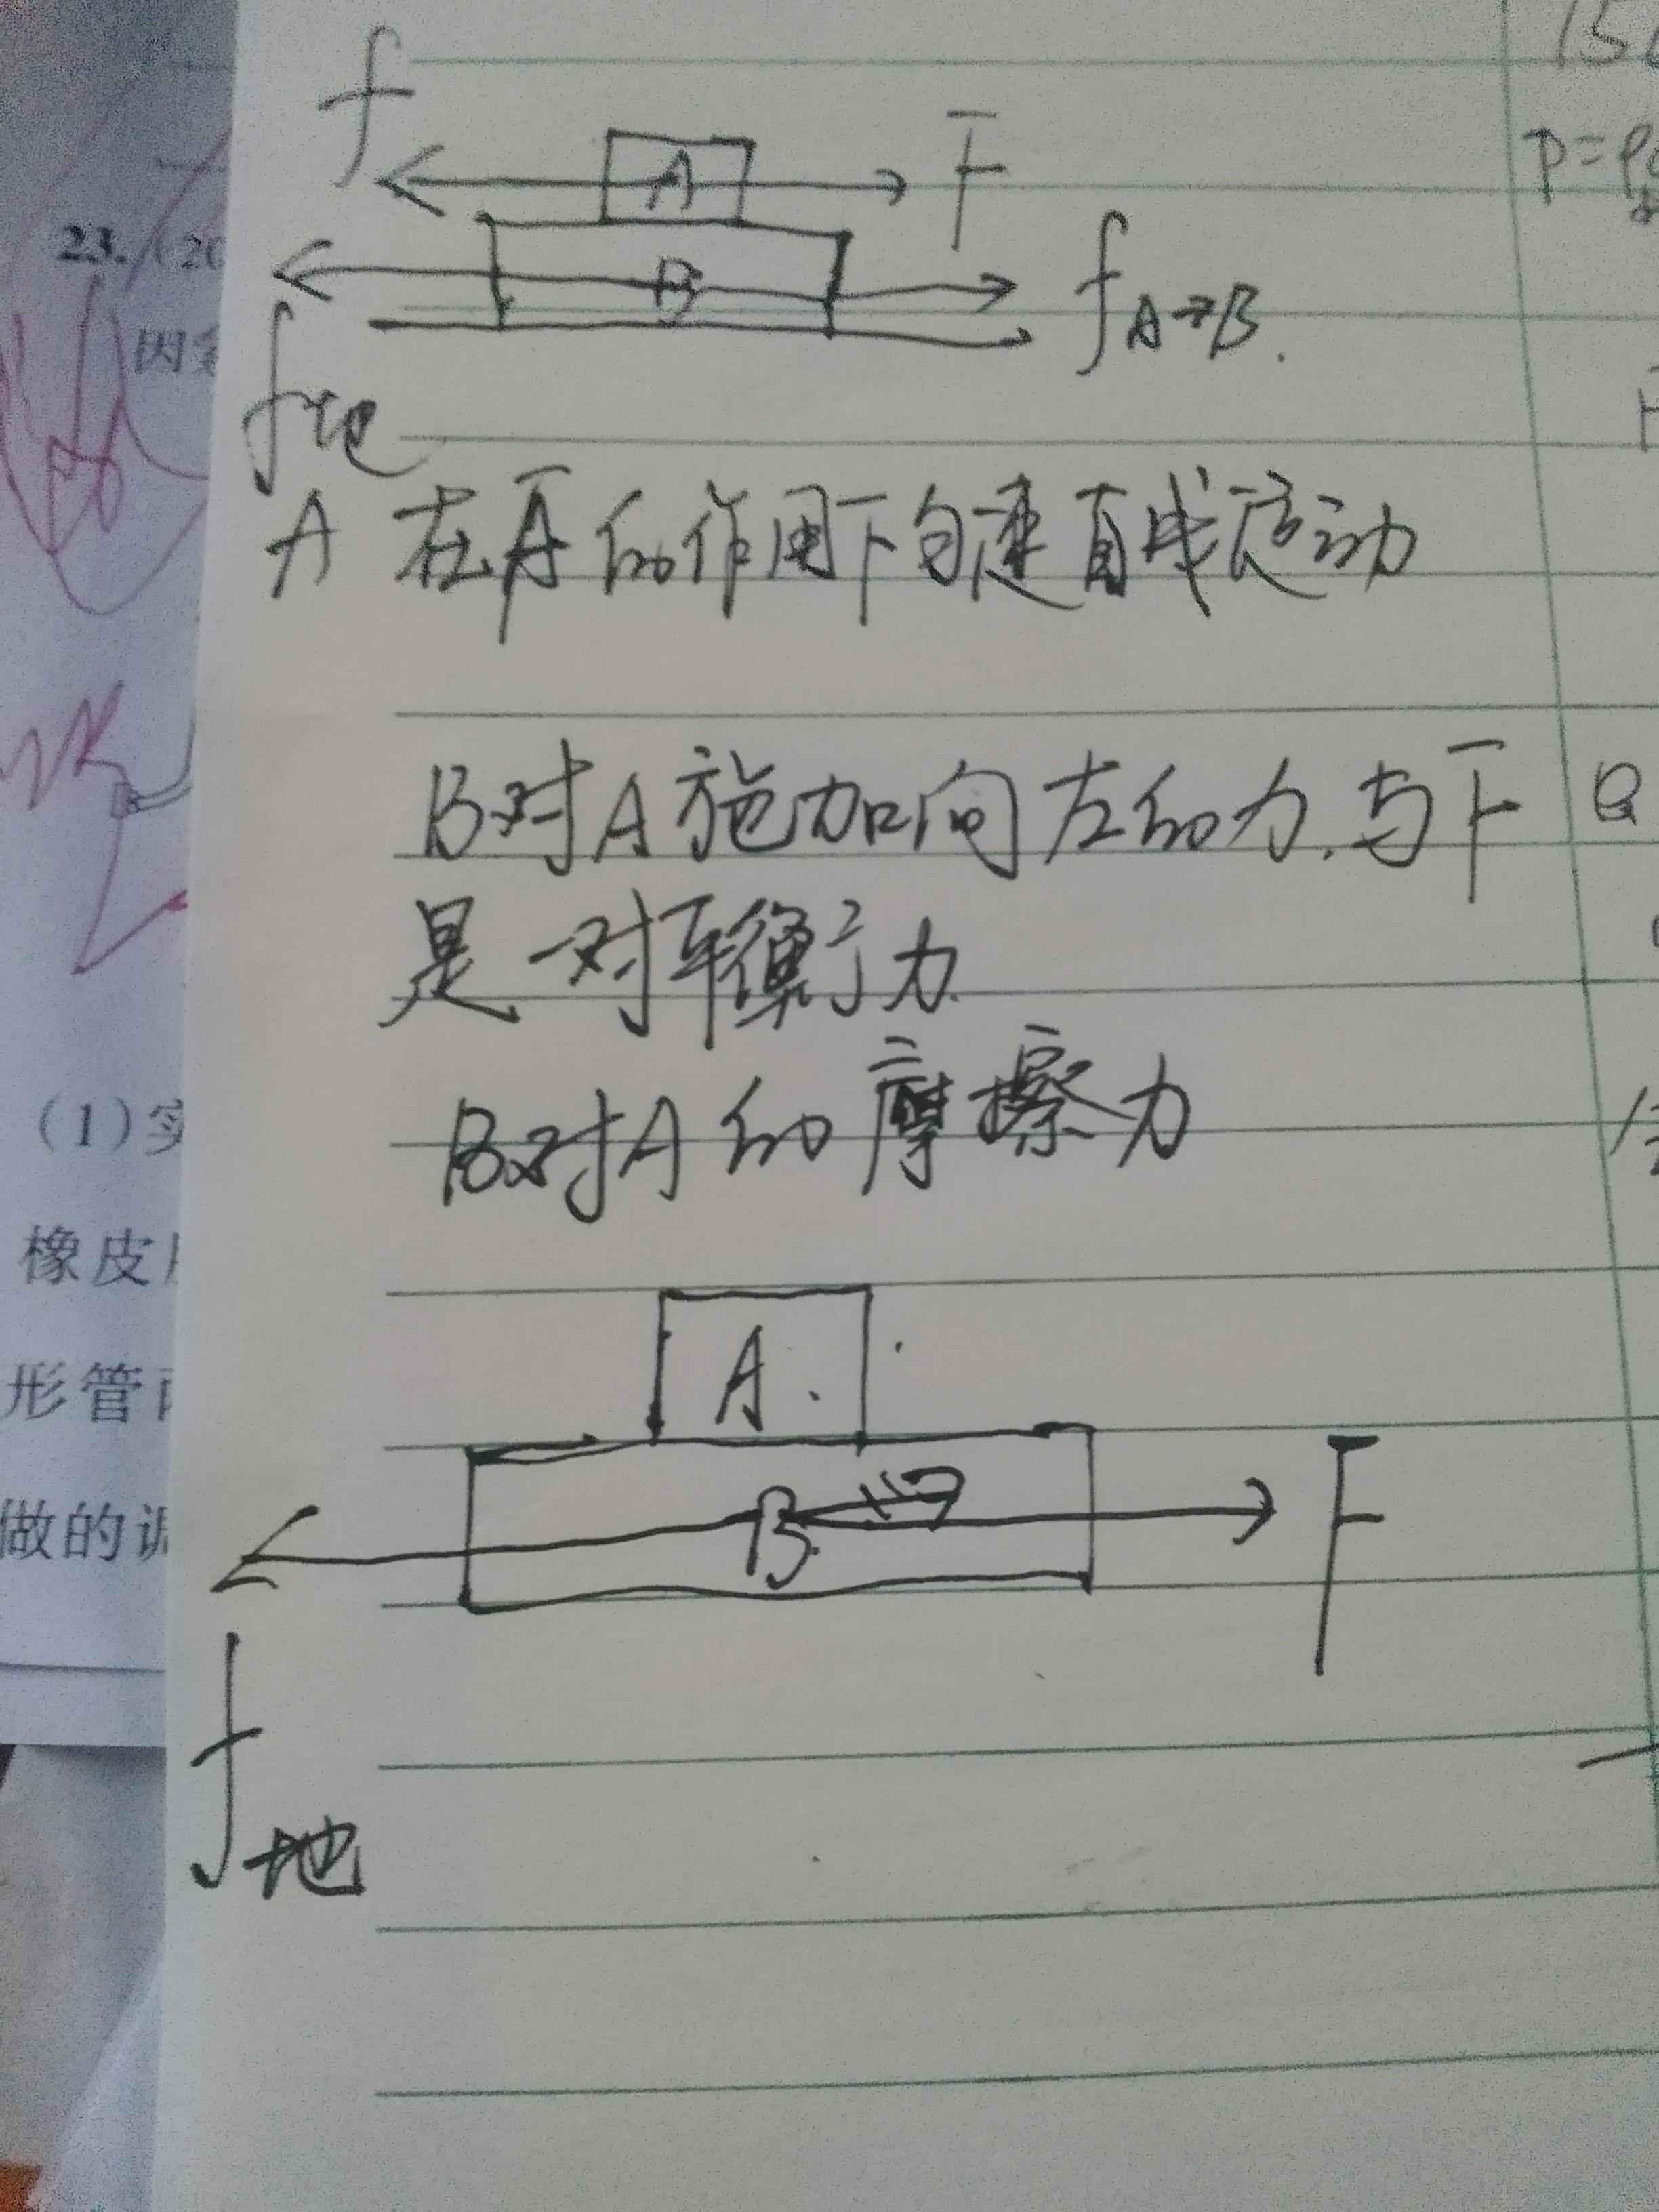 15
f
A
F
p=ρg
23. (20
B
f A→B.
因
f地
A 在F的作用下匀速直线运动
B对A施加向左的力,与F
是一对平衡力.
B对A的摩擦力
(1)实
橡皮
形管
做的调
A.
B
F
f地